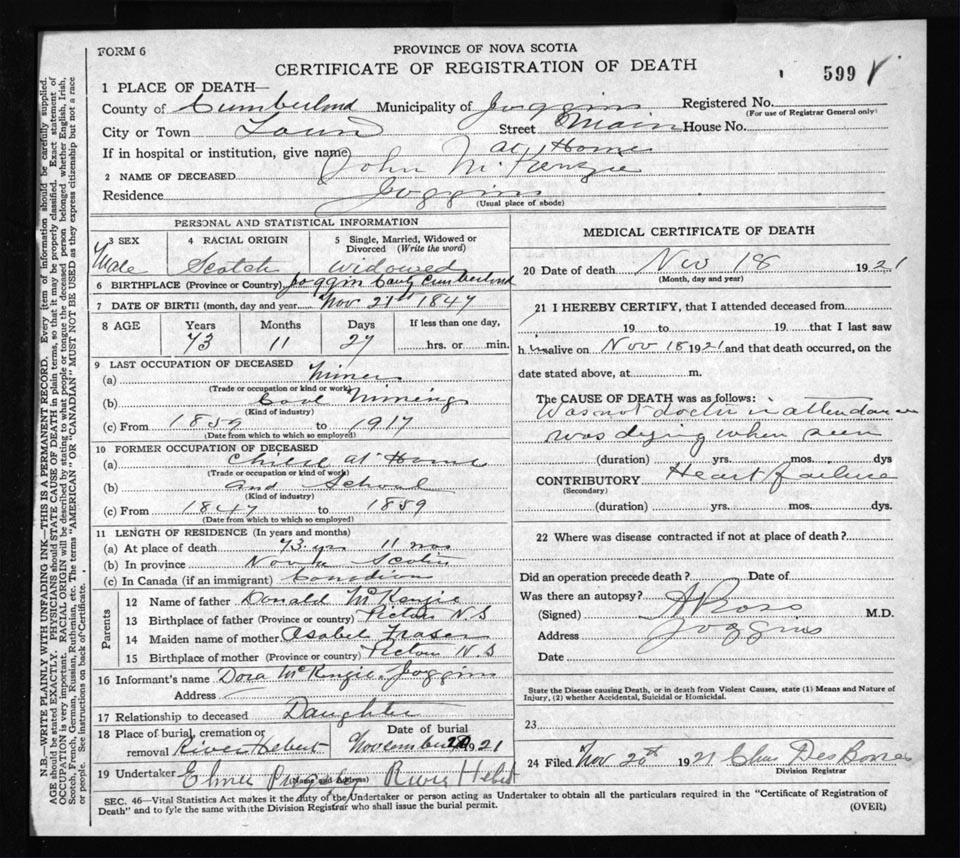 FORM 6
PROVINCE OF NOVA SCOTIA
CERTIFICATE OF REGISTRATION OF DEATH
599
1 PLACE OF DEATH—
County of Cumberland Municipality of Joggins Registered No.
(For use of Registrar General only)
City or Town Town Street Main House No.
If in hospital or institution, give name) At Home
2 NAME OF DECEASED John McKenzie
Residence Joggins
(Usual place of abode)
PERSONAL AND STATISTICAL INFORMATION
3 SEX 4 RACIAL ORIGIN 5 Single, Married, Widowed or Divorced (Write the word)
Male Scotch Widowed
6 BIRTHPLACE (Province or Country) Joggins Cumberland
7 DATE OF BIRTH (month, day and year Nov. 21st 1847
8 AGE Years Months Days If less than one day,
73 11 27 hrs. or min.
9 LAST OCCUPATION OF DECEASED
(a) Miner
(Trade or occupation or kind or work)
(b) Coal Mining
(Kind of industry)
(c) From 1859 to 1917
(Date from which to which so employed)
10 FORMER OCCUPATION OF DECEASED
(a) Child at Home
(Trade or occupation or kind of work)
(b) and School
(Kind of industry)
(c) From 1847 to 1859
(Date from which to which so employed)
11 LENGTH OF RESIDENCE (In years and months)
(a) At place of death 73 yrs 11 mos
(b) In province Nova Scotia
(c) In Canada (if an immigrant) Canadian
Parents
12 Name of father Donald McKenzie
13 Birthplace of father (Province or country) Pictou N.S
14 Maiden name of mother Isabel Fraser
15 Birthplace of mother (Province or country) Pictou N.S
16 Informant's name Dora McKenzie, Joggins
Address
17 Relationship to deceased Daughter
18 Place of burial, cremation or removal River Hebert Date of burial November 20 1921
19 Undertaker Elmer Pugsley (Name and Address) River Hebert
MEDICAL CERTIFICATE OF DEATH
20 Date of death Nov 18 1921
(Month, day and year)
21 I HEREBY CERTIFY, that I attended deceased from
19 to 19 that I last saw
him alive on Nov 18 1921 and that death occurred, on the
date stated above, at m.
The CAUSE OF DEATH was as follows:
Was not doctor in attendance
was dying when seen
(duration) yrs. mos. dys
CONTRIBUTORY Heart failure
(Secondary)
(duration) yrs. mos. dys.
22 Where was disease contracted if not at place of death?
Did an operation precede death? Date of
Was there an autopsy?
(Signed) Ross M.D.
Address Joggins
Date
State the Disease causing Death, or in death from Violent Causes, state (1) Means and Nature of Injury, (2) whether Accidental, Suicidal or Homicidal.
23
24 Filed Nov 20th 1921 Chas
Division Registrar
SEC. 46—Vital Statistics Act makes it the duty of the Undertaker or person acting as Undertaker to obtain all the particulars required in the "Certificate of Registration of
Death" and to fyle the same with the Division Registrar who shall issue the burial permit. (OVER)
N.B.—WRITE PLAINLY WITH UNFADING INK—THIS IS A PERMANENT RECORD. Every item of information should be carefully supplied.
AGE should be stated EXACTLY. PHYSICIANS should STATE CAUSE OF DEATH in plain terms, so that it may be properly classified. Exact statement of
OCCUPATION is very important. RACIAL ORIGIN will be described by stating to what people or tongue the deceased person belonged whether English, Irish,
Scotch, French, German, Russian, Ruthenian, etc. The terms "AMERICAN" OR "CANADIAN" MUST NOT BE USED as they express citizenship but not a race
or people. See instructions on back of Certificate.